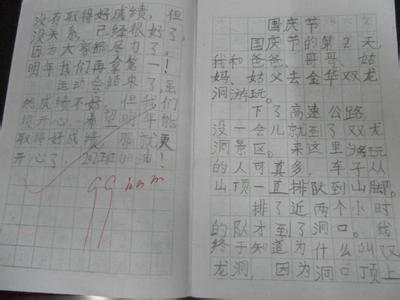 没有取得好成绩，但
没关系，已经很好了，
因为大家都尽力了！
明年我们再拿第一！
运动会结束了，虽
然成绩不好，但我们
很开心。希望明年能
取得好成绩，那就更
开心了，202班加油！
99
国庆节
国庆节的第2天，
我和爸爸、哥哥、姑
妈、姑父去金华双龙
洞游玩。
下了高速公路
没一会儿就到了双龙
洞景区。来这里游玩
的人可真多，车子从
山顶一直排队到山脚。
排了近两个小时
的队才到了洞口。我
终于知道为什么叫双
龙洞，因为洞口顶上